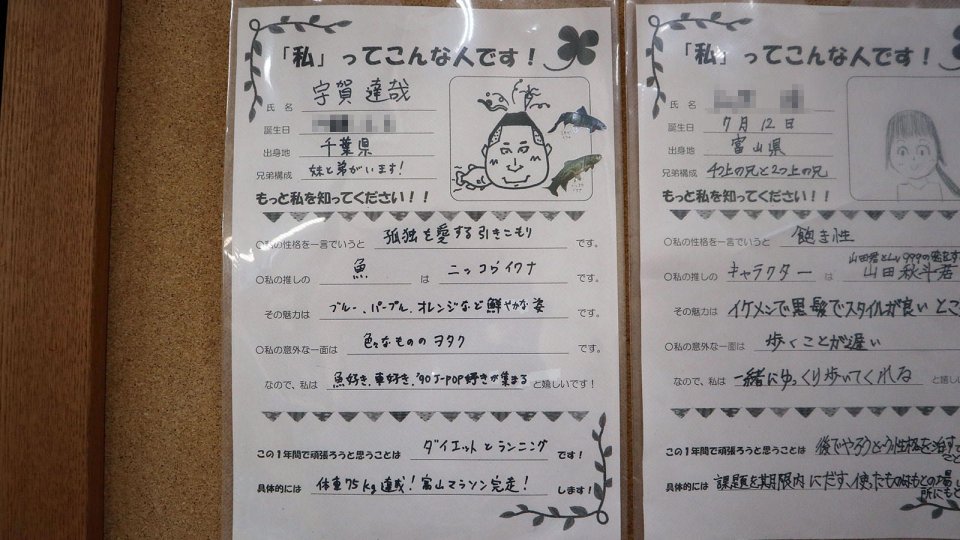 「私」ってこんな人です！
氏名 宇賀 達哉
誕生日
出身地 千葉県
兄弟構成 妹と弟がいます！
もっと私を知ってください！！
○私の性格を一言でいうと 孤独を愛する引きこもり です。
○私の推しの 魚 は ニッコウイワナ です。
その魅力は ブルー、パープル、オレンジなど鮮やかな姿 です。
○私の意外な一面は 色々なもののヲタク です。
なので、私は 魚好き、車好き、'90 J-POP好きが集まる と嬉しいです！
この1年間で頑張ろうと思うことは ダイエットとランニング です！
具体的には 体重75kg達成！富山マラソン完走！ します！
「私」ってこんな人です！
氏名
誕生日 7月12日
出身地 富山県
兄弟構成 4つ上の兄と2つ上の兄
もっと私を知ってください！！
○私の性格を一言でいうと 飽き性
○私の推しの キャラクター は 山田秋斗君
山田君とLv999の恋をす
その魅力は イケメンで黒髪でスタイルが良いとこ
○私の意外な一面は 歩くことが遅い
なので、私は 一緒にゆっくり歩いてくれる と嬉し
この1年間で頑張ろうと思うことは 後でやろうという性格を治す
こと
具体的には 課題を期限内にだす、使ったものはもとの場
所にも